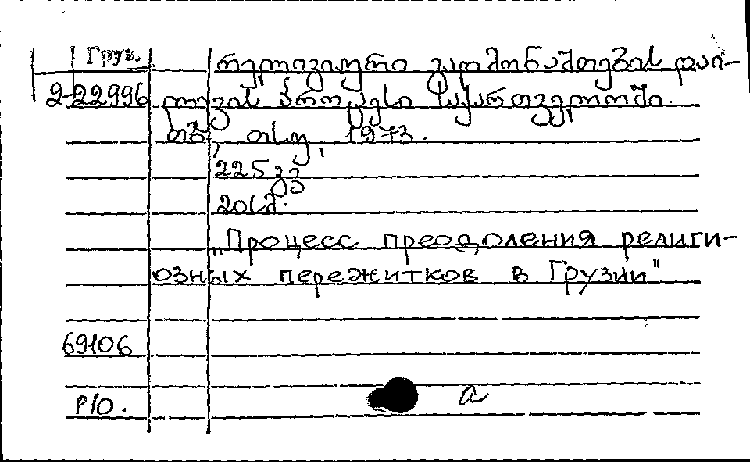 Груз.
რელიგიური გადმონაშთების დაძ-
2-22996 ლევის პროცესი საქართველოში.
თბ., თსუ, 1973.
225 გვ
20სმ.
"Процесс преодоления религи-
озных пережитков в Грузии"
69106
Р10. а